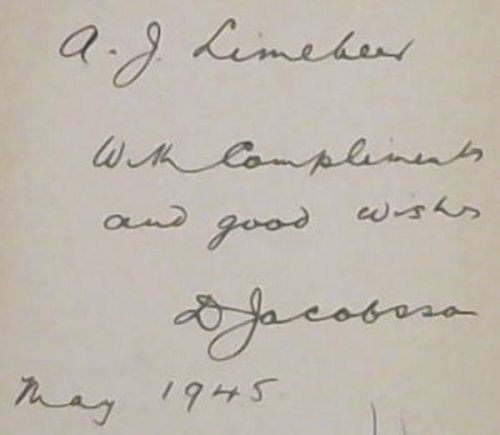 A. J. Limebeer
With Compliments
and good wishes
D Jacobsson
May 1945